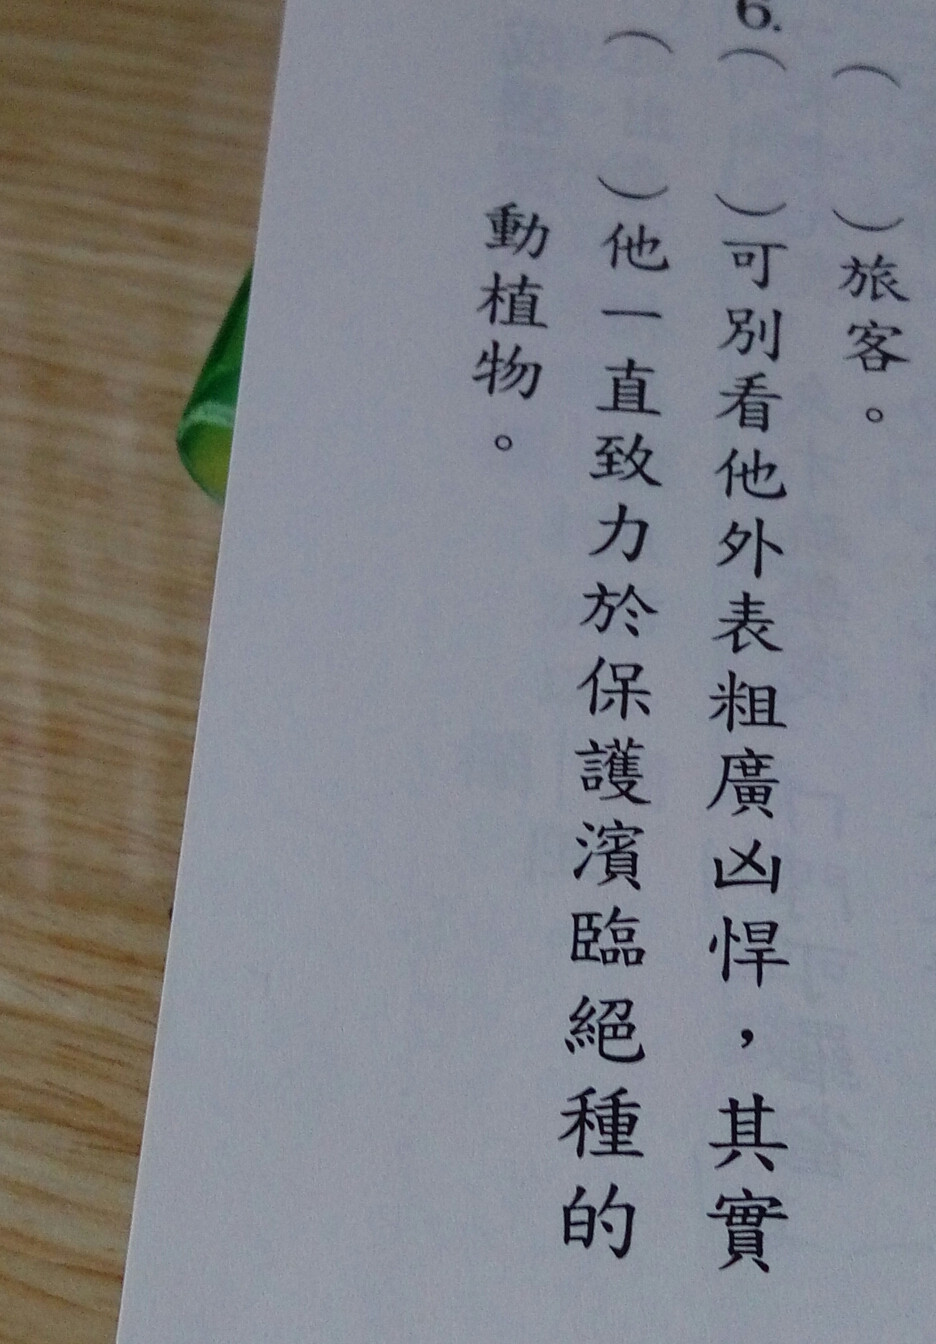 ( )旅客。
6.
( )可別看他外表粗廣凶悍，其實
( )他一直致力於保護濱臨絕種的
動植物。